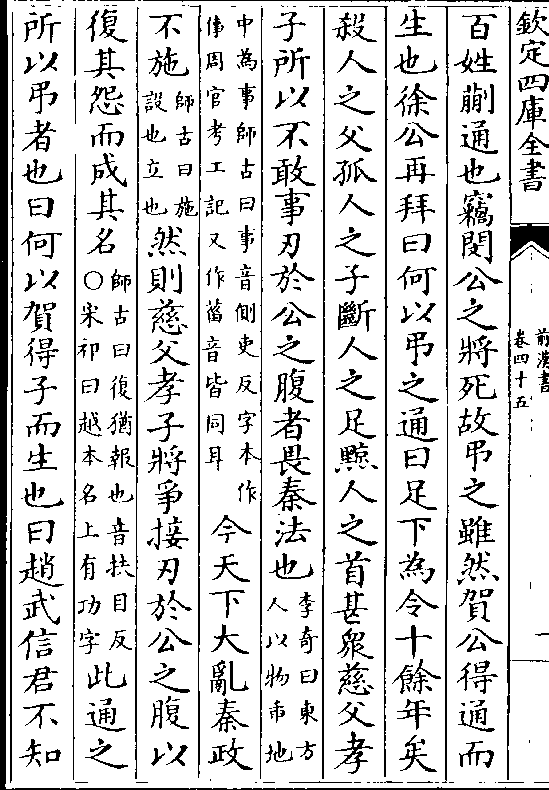 欽定四庫全書
前漢書
卷四十五
一
百姓蒯通也竊閔公之將死故弔之雖然賀公得通而
生也徐公再拜曰何以弔之通曰足下為令十餘年矣
殺人之父孤人之子斷人之足黥人之首甚衆慈父孝
子所以不敢事刃於公之腹者畏秦法也李奇曰東方人以物臿地
中為事師古曰事音側吏反字本作倳周官考工記又作菑音皆同耳今天下大亂秦政
不施師古曰施設也立也然則慈父孝子將爭接刃於公之腹以
復其怨而成其名師古曰復猶報也音扶目反〇宋祁曰越本名上有功字此通之
所以弔者也曰何以賀得子而生也曰趙武信君不知